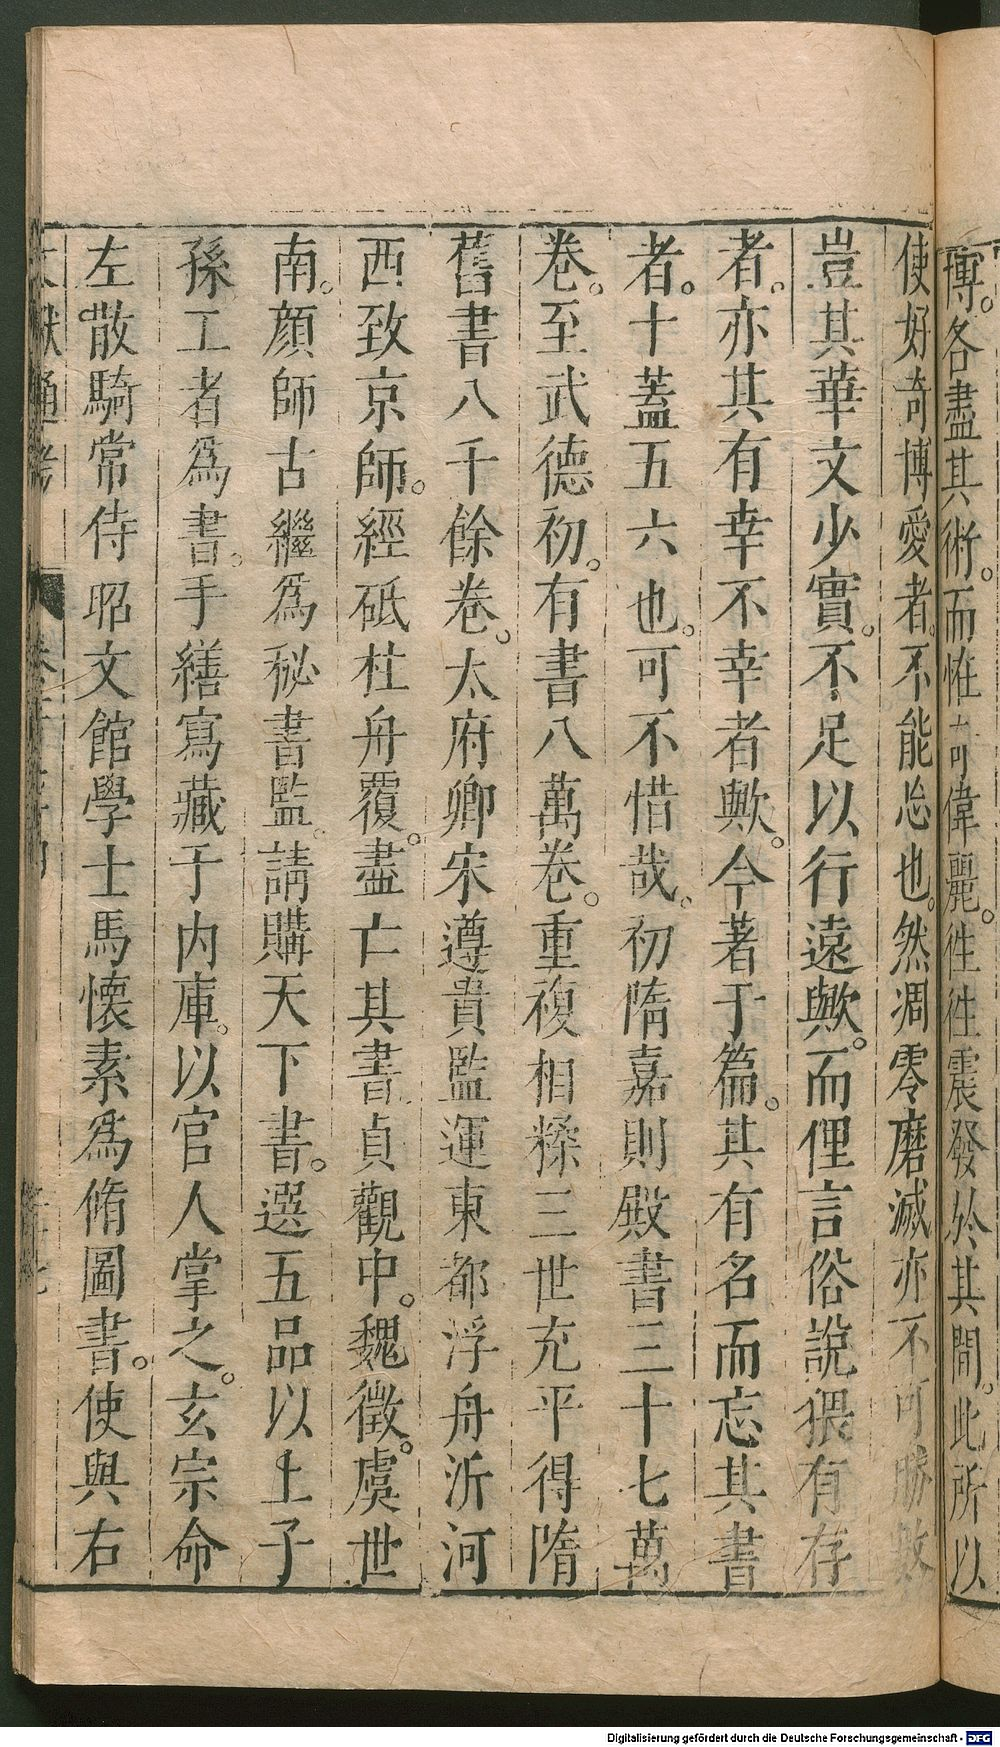 博。各盡其術。而怪奇偉麗。徃徃震發於其間。此所以
使好奇博愛者。不能忘也。然凋零磨滅亦不可勝數
豈其華文少實。不足以行遠歟。而俚言俗說猥有存
者。亦其有幸不幸者歟。今著于篇。其有名而忘其書
者。十蓋五六也。可不惜哉。初隋嘉則殿書三十七萬
卷。至武德初。有書八萬卷。重複相糅三世充平得隋
舊書八千餘卷。太府卿宋遵貴監運東都浮舟泝河
西致京師。經砥柱舟覆。盡亡其書貞觀中。魏徵。虞世
南。顏師古繼爲秘書監。請購天下書。選五品以上子
孫工者爲書。手繕寫藏于内庫。以官人掌之。玄宗命
左散騎常侍昭文館學士馬懷素爲脩圖書。使與右
文獻通考
Digitalisierung gefördert durch die Deutsche Forschungsgemeinschaft - DFG